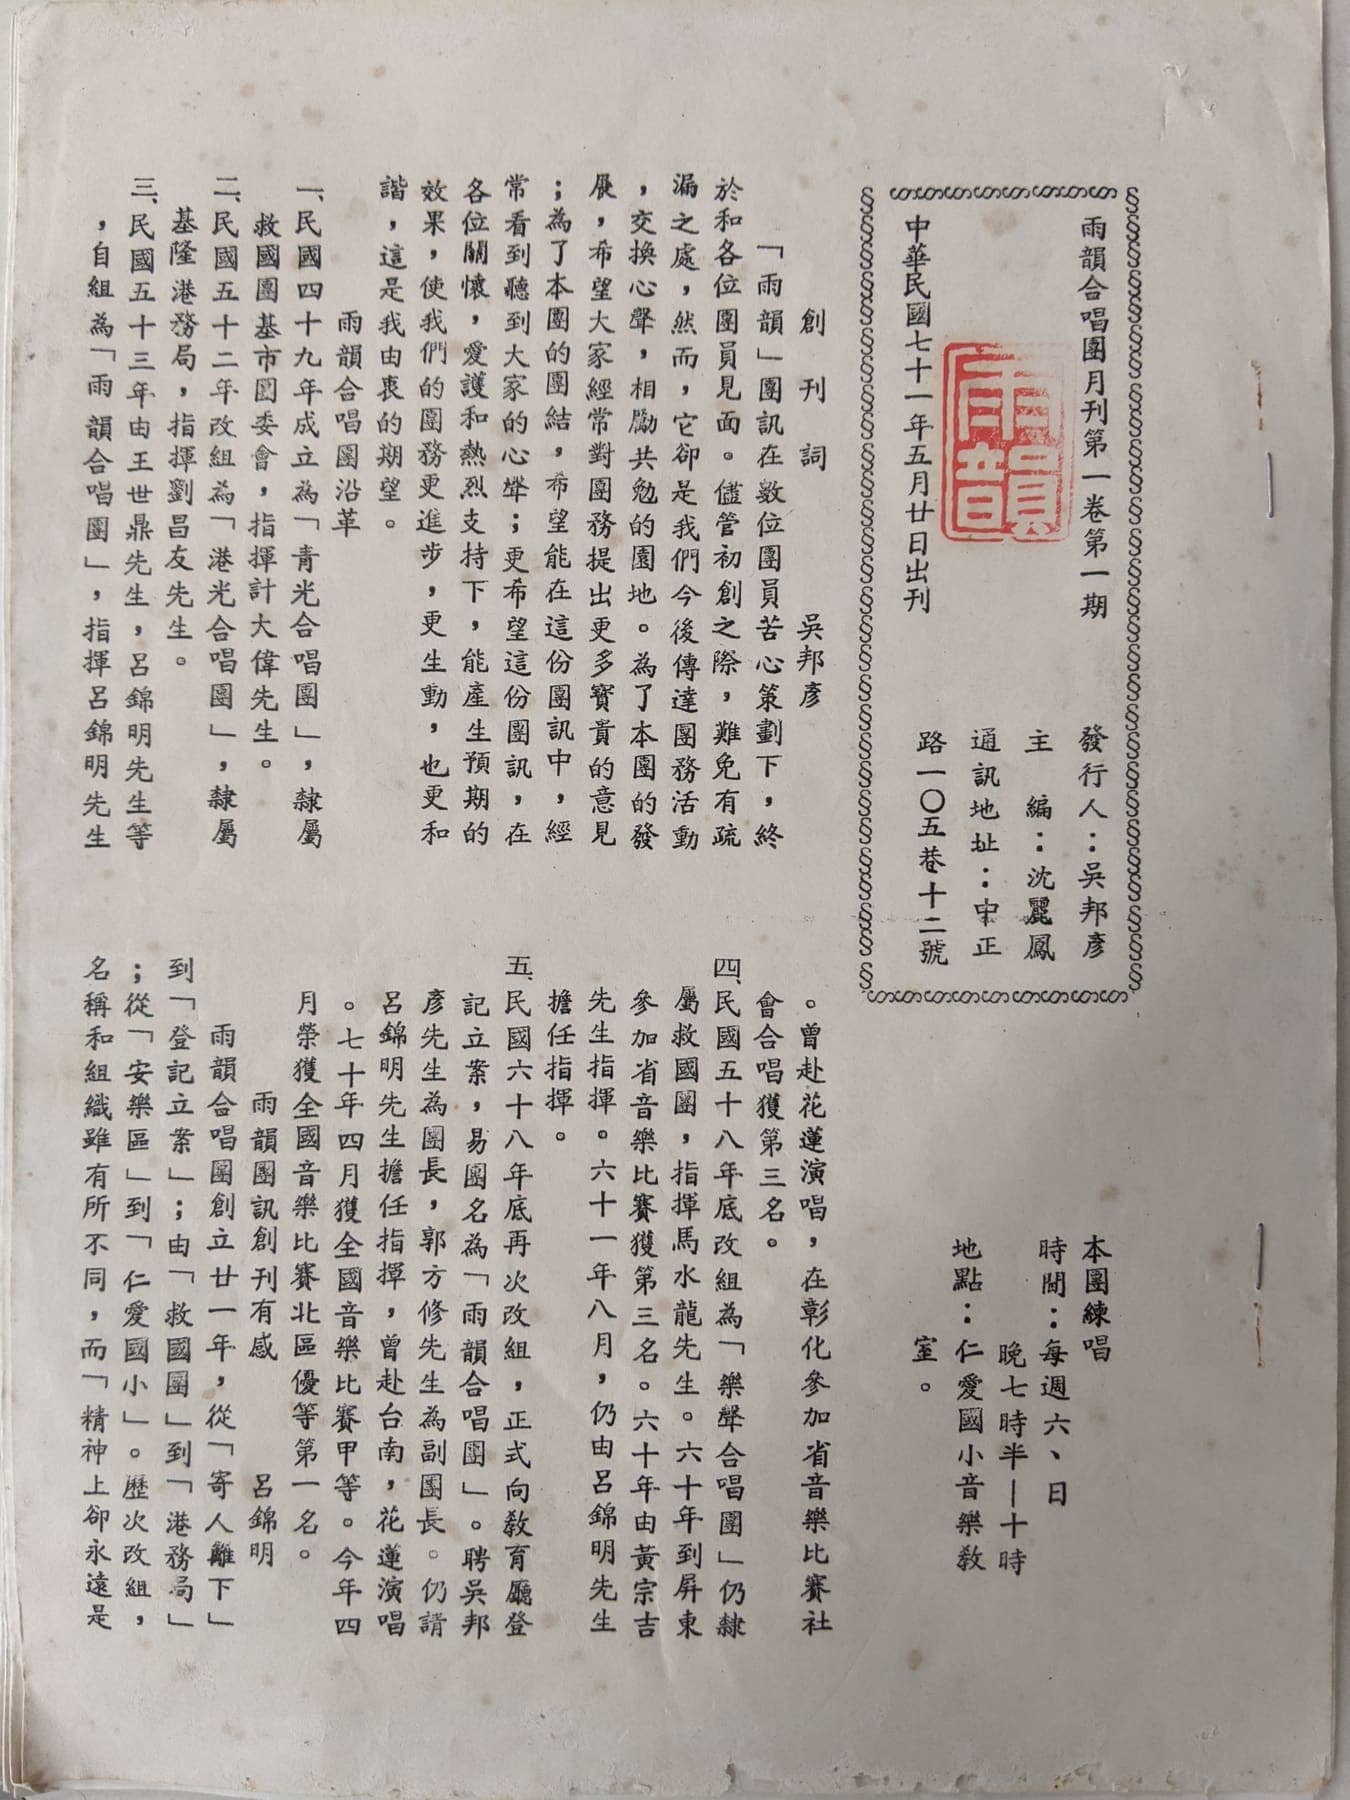 雨韻合唱團月刊第一卷第一期
雨韻
中華民國七十一年五月廿日出刊
發行人：吳邦彥
主編：沈麗鳳
通訊地址：中正
路一〇五巷十二號
本團練唱
時間：每週六、日
晚七時半—十時
地點：仁愛國小音樂教
室。
創刊詞　吳邦彥
「雨韻」團訊在數位團員苦心策劃下，終
於和各位團員見面。儘管初創之際，難免有疏
漏之處，然而，它卻是我們今後傳達團務活動
，交換心聲，相勵共勉的園地。為了本團的發
展，希望大家經常對團務提出更多寶貴的意見
；為了本團的團結，希望能在這份團訊中，經
常看到聽到大家的心聲；更希望這份團訊，在
各位關懷，愛護和熱烈支持下，能產生預期的
效果，使我們的團務更進步，更生動，也更和
諧，這是我由衷的期望。
雨韻合唱團沿革
一、民國四十九年成立為「青光合唱團」，隸屬
救國團基市團委會，指揮計大偉先生。
二、民國五十二年改組為「港光合唱團」，隸屬
基隆港務局，指揮劉昌友先生。
三、民國五十三年由王世鼎先生，呂錦明先生等
，自組為「雨韻合唱團」，指揮呂錦明先生
。曾赴花蓮演唱，在彰化參加省音樂比賽社
會合唱獲第三名。
四、民國五十八年底改組為「樂聲合唱團」仍隸
屬救國團，指揮馬水龍先生。六十年到屏東
參加省音樂比賽獲第三名。六十年由黃宗吉
先生指揮。六十一年八月，仍由呂錦明先生
擔任指揮。
五、民國六十八年底再次改組，正式向教育廳登
記立案，易團名為「雨韻合唱團」。聘吳邦
彥先生為團長，郭方修先生為副團長。仍請
呂錦明先生擔任指揮，曾赴台南，花蓮演唱
。七十年四月獲全國音樂比賽甲等。今年四
月榮獲全國音樂比賽北區優等第一名。
雨韻團訊創刊有感　呂錦明
雨韻合唱團創立廿一年，從「寄人離下」
到「登記立案」；由「救國團」到「港務局」
；從「安樂區」到「仁愛國小」。歷次改組，
名稱和組織雖有所不同，而「精神上卻永遠是